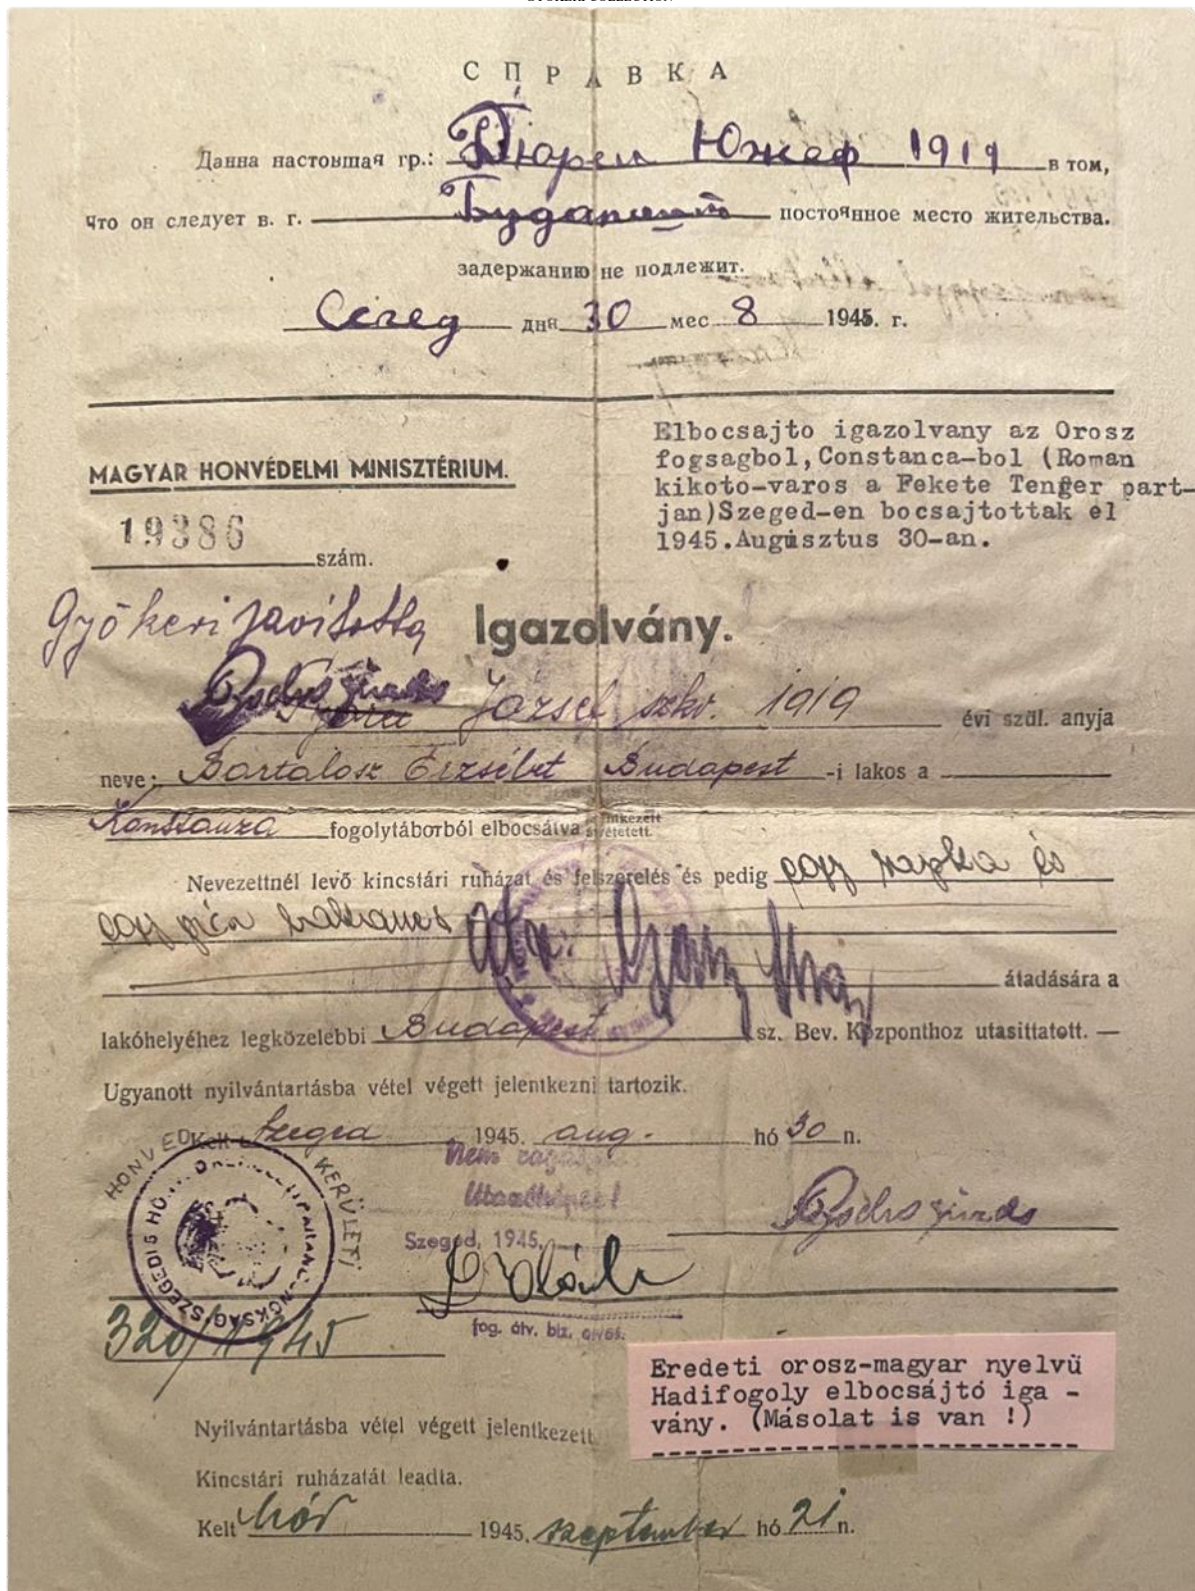 С П Р А В К А
Данна настоншая гр.: Южеф 1919 в том,
что он следует в. г. Будапешт постоянное место жительства.
задержанию не подлежит.
Сегед дня 30 мес 8 1945. г.
Elbocsajto igazolvany az Orosz
fogsagbol, Constanca-bol (Roman
kikoto-varos a Fekete Tenger part-
jan)Szeged-en bocsajtottak el
1945.Augusztus 30-an.
MAGYAR HONVÉDELMI MINISZTÉRIUM.
19386
szám.
Győkeri javította
Igazolvány.
József szkv. 1919 évi szül. anyja
neve: Bartalosz Erzsébet Budapest -i lakos a
Konstanza fogolytáborból elbocsátva
Nevezettnél levő kincstári ruházat és felszerelés és pedig egy sapka és
egy bakancs
átadására a
lakóhelyéhez legközelebbi Budapest sz. Bev. Központhoz utasittatott. —
Ugyanott nyilvántartásba vétel végett jelentkezni tartozik.
Kelt Szeged 1945. aug. hó 30 n.
HONVÉD KERÜLETI
SZEGEDI
Nem
Szeged, 1945.
fog. átv. biz. orvos.
320/1945
Eredeti orosz-magyar nyelvü
Hadifogoly elbocsájtó iga -
vány. (Másolat is van !)
Nyilvántartásba vétel végett jelentkezett.
Kincstári ruházatát leadta.
Kelt Mór 1945. szeptember hó 21 n.